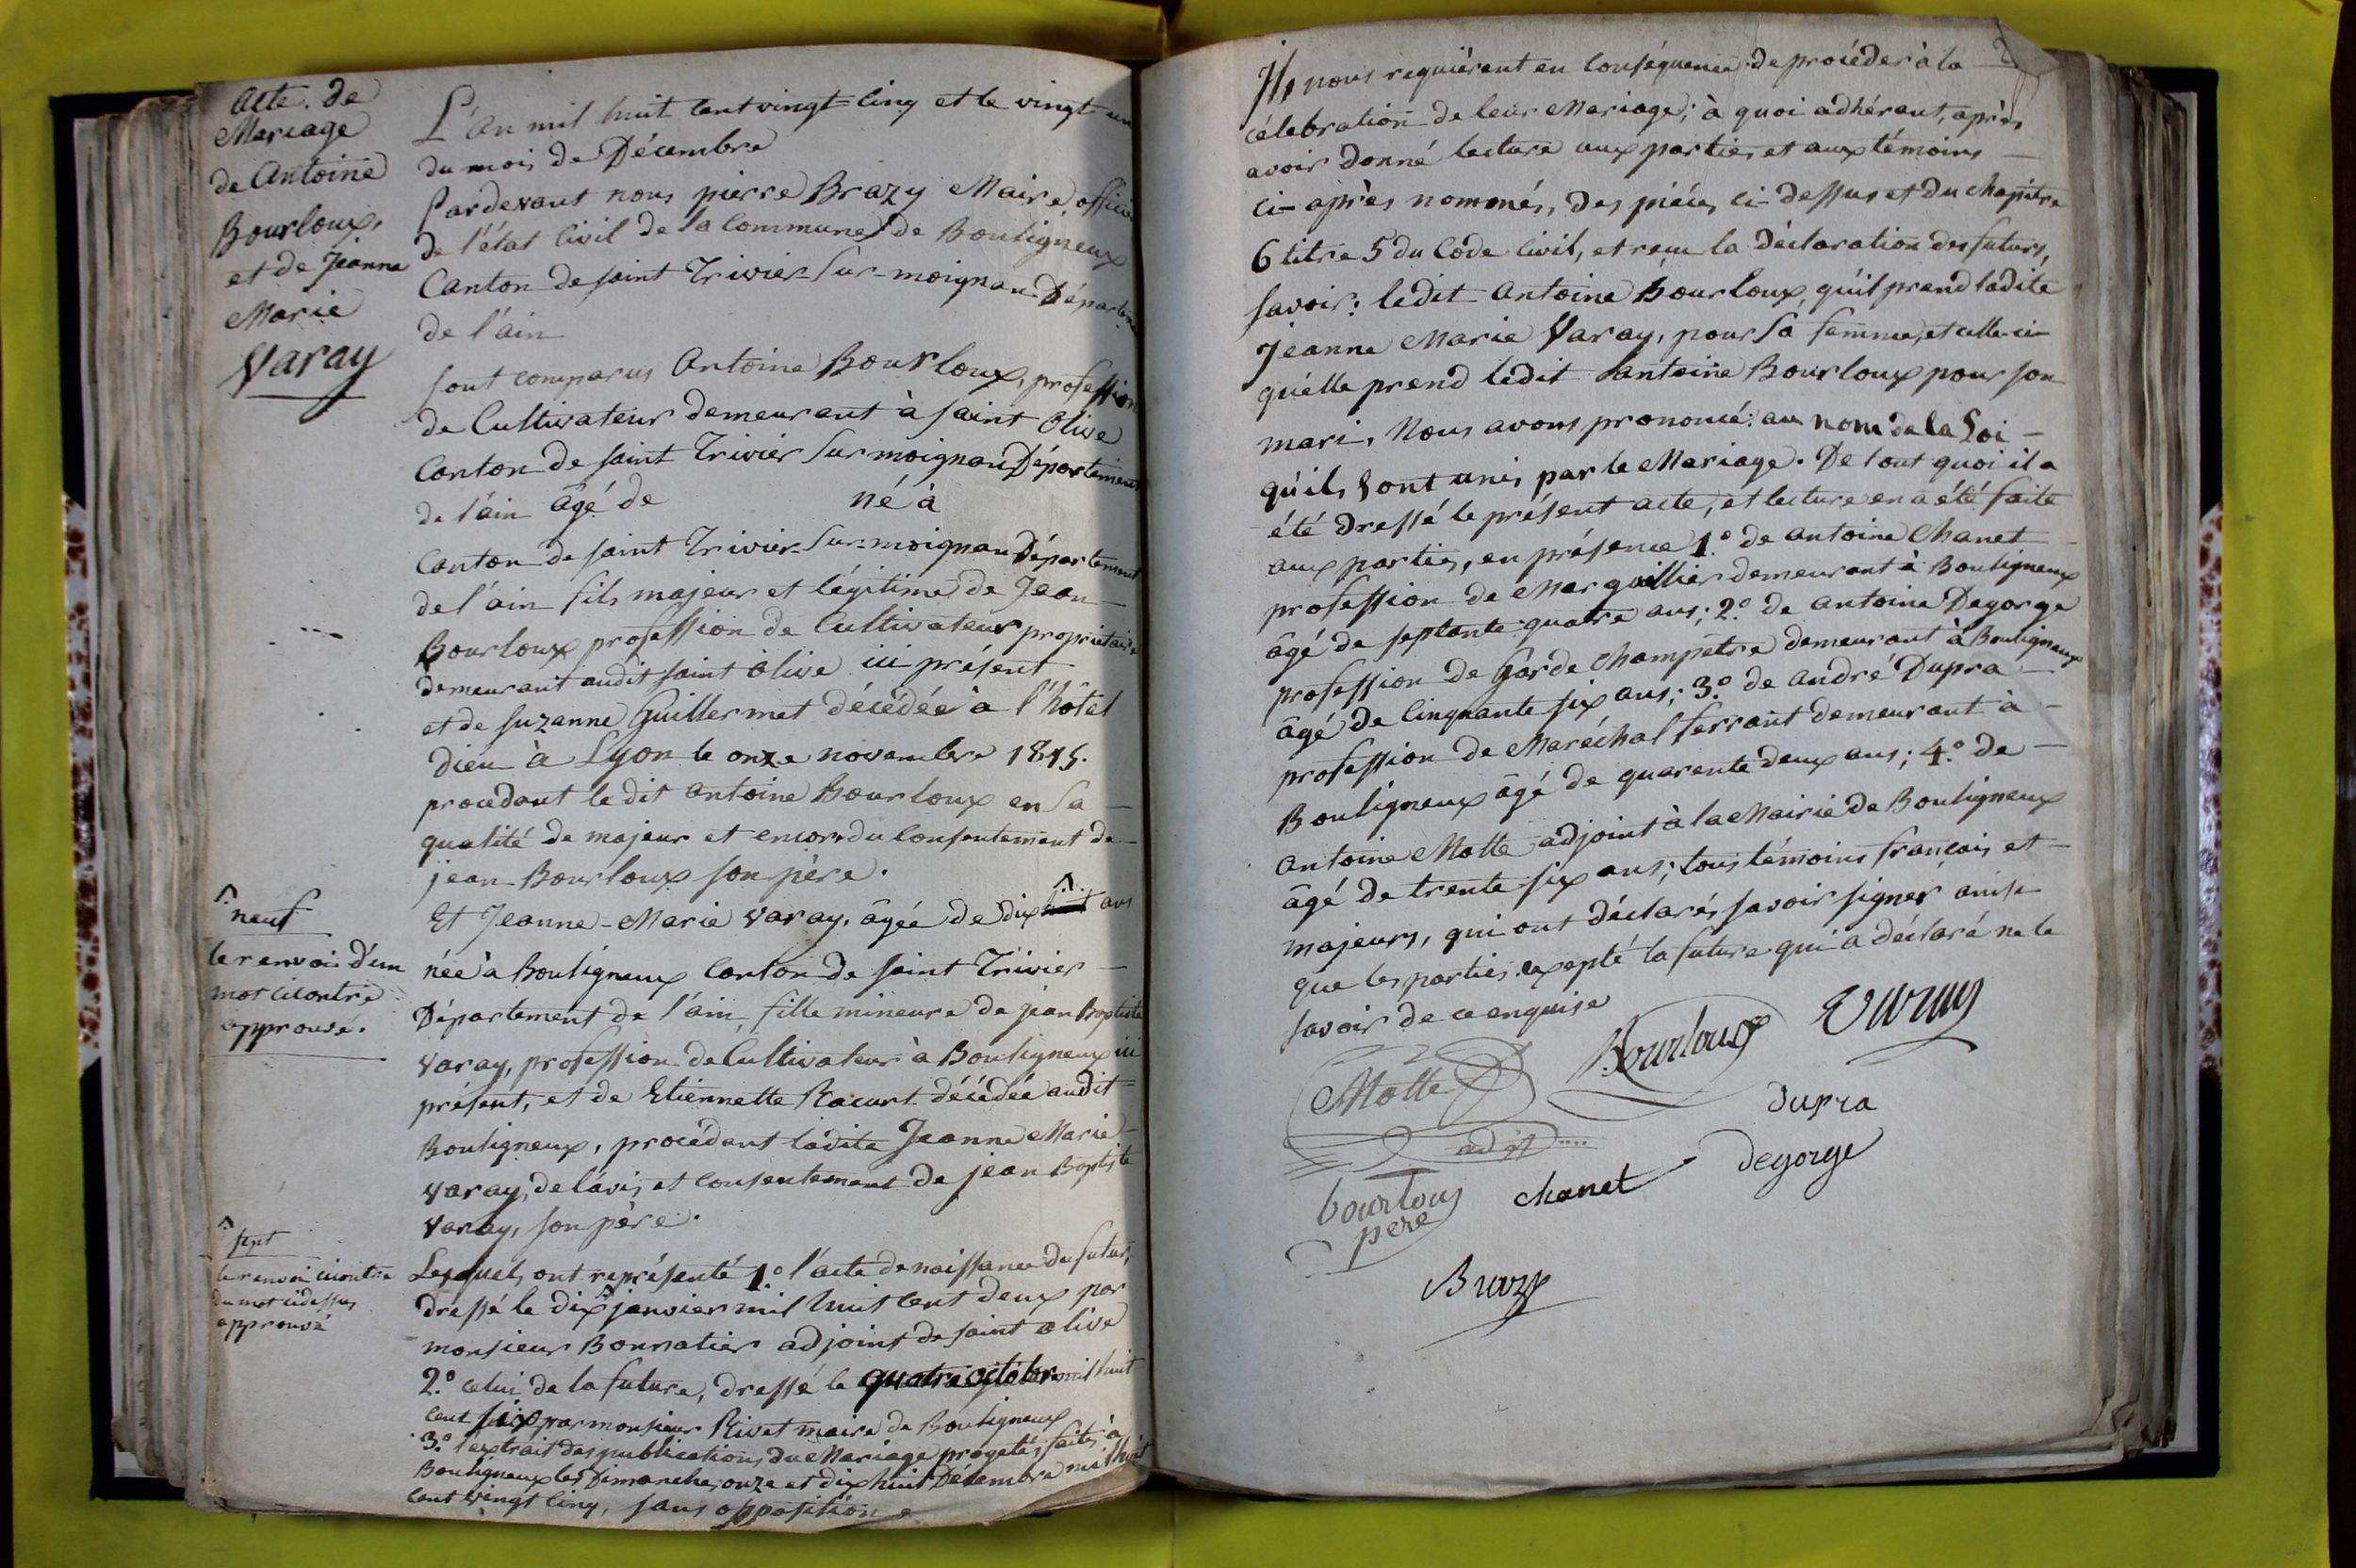 Acte. de
Mariage
de Antoine
Bourloux,
et de Jeanne
Marie
Varay
L'An mil huit cent vingt=cinq et le vingt un
du mois de Décembre
Pardevant nous pierre Brazy Maire officier
de l'état Civil de la Commune de Bouligneux
Canton de saint Trivier-Sur-moignan Départem
de l'ain
sont comparus Antoine Bourloux, profession
de Cultivateur demeurant à saint Olive
Canton de saint Trivier Sur moignan Département
de l'ain âgé de né à
Canton de saint Trivier-Sur-moignan Département
de l'ain fils majeur et légitime de Jean
Bourloux profession de Cultivateur propriétaire
demeurant audit saint Olive ici présent
et de Suzanne Guillermet décédée à l'hôtel
dieu à Lyon le onze novembre 1815.
procedant le dit antoine Bourloux en Sa
qualité de majeur et encore du Consentement de
jean Bourloux son père.
Et Jeanne-Marie varay, âgée de dix huit ans
^ neuf
le renvoi d'un
mot cicontre
approuvé.
née à Bouligneux Canton de saint Trivier
Département de l'ain, fille mineure de jean Baptiste
varay, profession de Cultivateur à Bouligneux ici
présent, et de Etiennette Racurt décédée audit=
Bouligneux, procédant ladite Jeanne Marie
varay, de l'avis et consentement de jean Baptiste
varay, son père.
^ sept
le renvoi cicontre
du mot cidessus
approuvé
Lesquels ont représenté 1.º l'acte de naissance du futur,
dressé le dix ^ janvier mil huit cent deux par
monsieur Bonnatier adjoint de saint olive
2.º celui de la future, dressé le quatre octobre mil huit
cent six par monsieur Rivet maire de Bouligneux
3.º l'extrait des publications du Mariage progetés faites à
Bouligneux les Dimanches onze et dix huit Décembre mil huit
cent vingt cinq, sans opposition
Ils nous requièrent en Conséquence de procéder à la
célebration de leur Mariage; à quoi adhérant, après
avoir donné lecture aux parties et aux témoins
ci-après nommés, des pièces ci-dessus et du chapitre
6 titre 5 du Code Civil, et reçu la Déclaration des futurs,
savoir: ledit Antoine Bourloux, qu'il prend ladite
Jeanne Marie Varay, pour Sa femme, et celle-ci
qu'elle prend ledit antoine Bourloux pour son
mari, Nous avons prononcé: au nom de la Loi
qu'ils Sont unis par le Mariage. De tout quoi il a
été dressé le présent acte, et lecture en a été faite
aux parties, en présence 1.º de antoine Chanet
profession de Marguillier demeurant à Bouligneux
âgé de septante quatre ans; 2.º de antoine Degorge
profession de Garde champêtre demeurant à Bouligneux
âgé de cinquante six ans; 3.º de andré Dupra
profession de Maréchal ferrant demeurant à
Bouligneux âgé de quarente deux ans; 4.º de
antoine Motte adjoint à la Mairie de Bouligneux
âgé de trente six ans; tous témoins français et
majeurs, qui ont déclarés savoir signer ainsi
que les parties exepté la future qui a déclaré ne le
savoir de ce enquise
Bourloux Varay
Motte
adjt
dupra
bourloux
pere
chanet degorge
Brazy